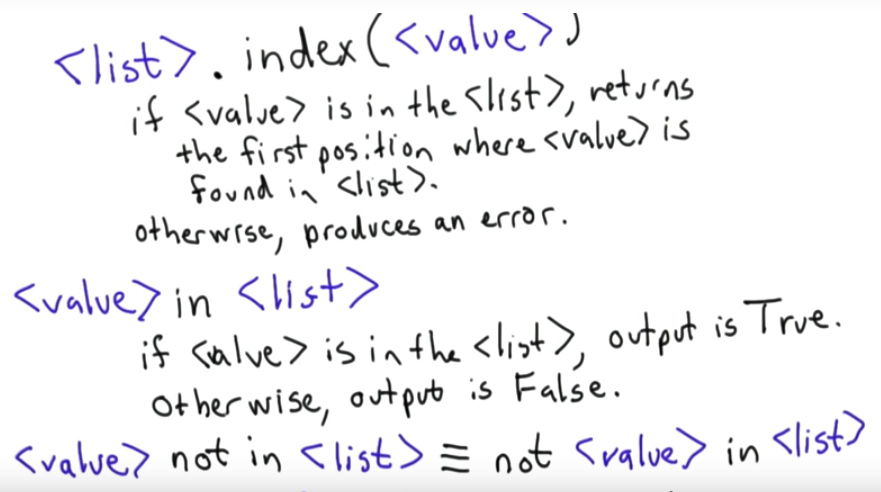 <list>.index(<value>)
if <value> is in the <list>, returns
the first position where <value> is
found in <list>.
otherwise, produces an error.
<value> in <list>
if <value> is in the <list>, output is True.
Otherwise, output is False.
<value> not in <list> ≡ not <value> in <list>